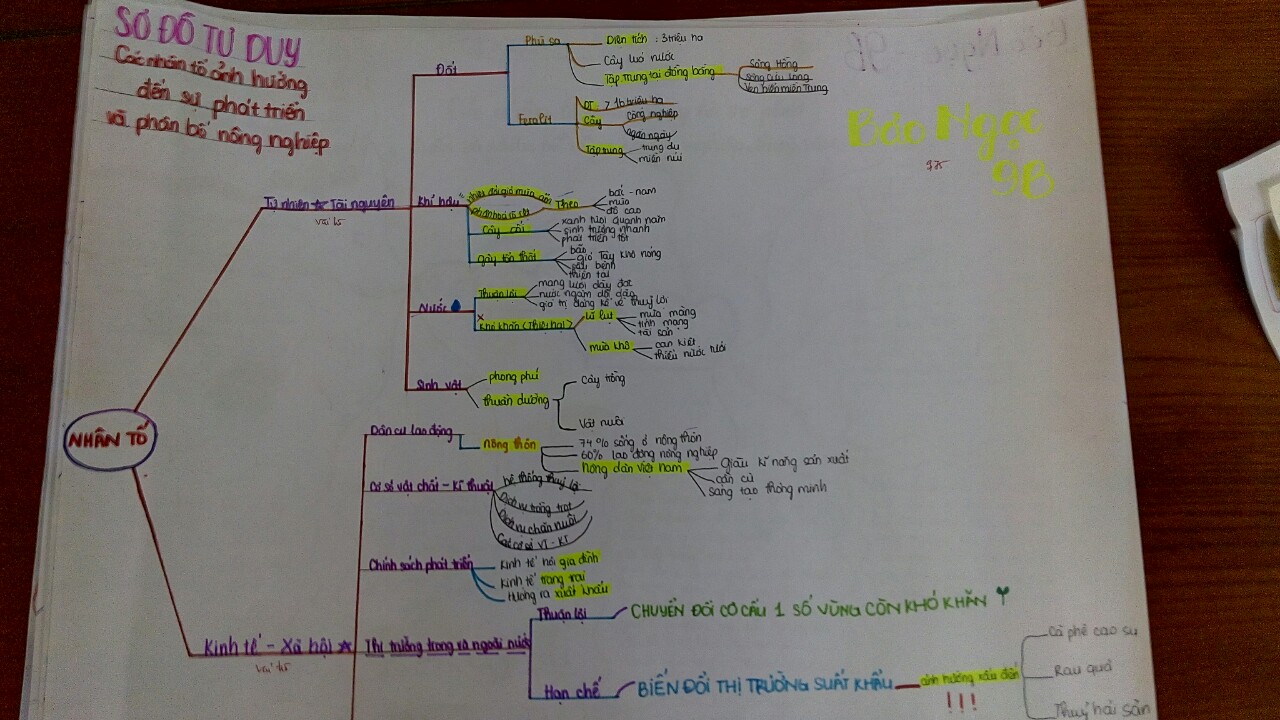 SƠ ĐỒ TƯ DUY
Các nhân tố ảnh hưởng
đến sự phát triển
và phân bố nông nghiệp
Bảo Ngọc
9B
NHÂN TỐ
Tự nhiên ☆ Tài nguyên
vai trò
Đất
Phù sa
Diện tích : 3 triệu ha
Cây lúa nước
Tập trung tại đồng bằng
Sông Hồng
Sông Cửu Long
Ven biển miền Trung
Feralit
DT > 16 triệu ha
Cây
Công nghiệp
Ngắn ngày
Tập trung
trung du
miền núi
Khí hậu
Nhiệt đới gió mùa ẩm
Phân hoá rõ rệt
Theo
bắc - nam
mùa
độ cao
Cây cối
xanh tươi quanh năm
sinh trưởng nhanh
phát triển tốt
Gây tổn thất
bão
gió Tây khô nóng
sâu bệnh
thiên tai
Nước
Thuận lợi
mạng lưới dày đặc
nước ngầm dồi dào
giá trị đáng kể về thuỷ lợi
Khó khăn (Thiệt hại)
lũ lụt
mùa màng
tính mạng
tài sản
mùa khô
cạn kiệt
thiếu nước tưới
Sinh vật
phong phú
thuần dưỡng
Cây trồng
Vật nuôi
Dân cư lao động
Nông thôn
74% sống ở nông thôn
60% lao động nông nghiệp
Nông dân Việt Nam
Giàu kĩ năng sản xuất
cần cù
sáng tạo thông minh
Cơ sở vật chất - Kĩ thuật
hệ thống thuỷ lợi
Dịch vụ trồng trọt
Dịch vụ chăn nuôi
Các cơ sở VT - KT
Chính sách phát triển
Kinh tế hội gia đình
Kinh tế trang trại
Hướng ra xuất khẩu
Kinh tế - Xã hội ☆
Thị trường trong và ngoài nước
Thuận lợi
CHUYỂN ĐỔI CƠ CẤU 1 SỐ VÙNG CÒN KHÓ KHĂN
Hạn chế
BIẾN ĐỔI THỊ TRƯỜNG SUẤT KHẨU
ảnh hưởng xấu đến
!!!
Cà phê cao su
Rau quả
Thuỷ hải sản